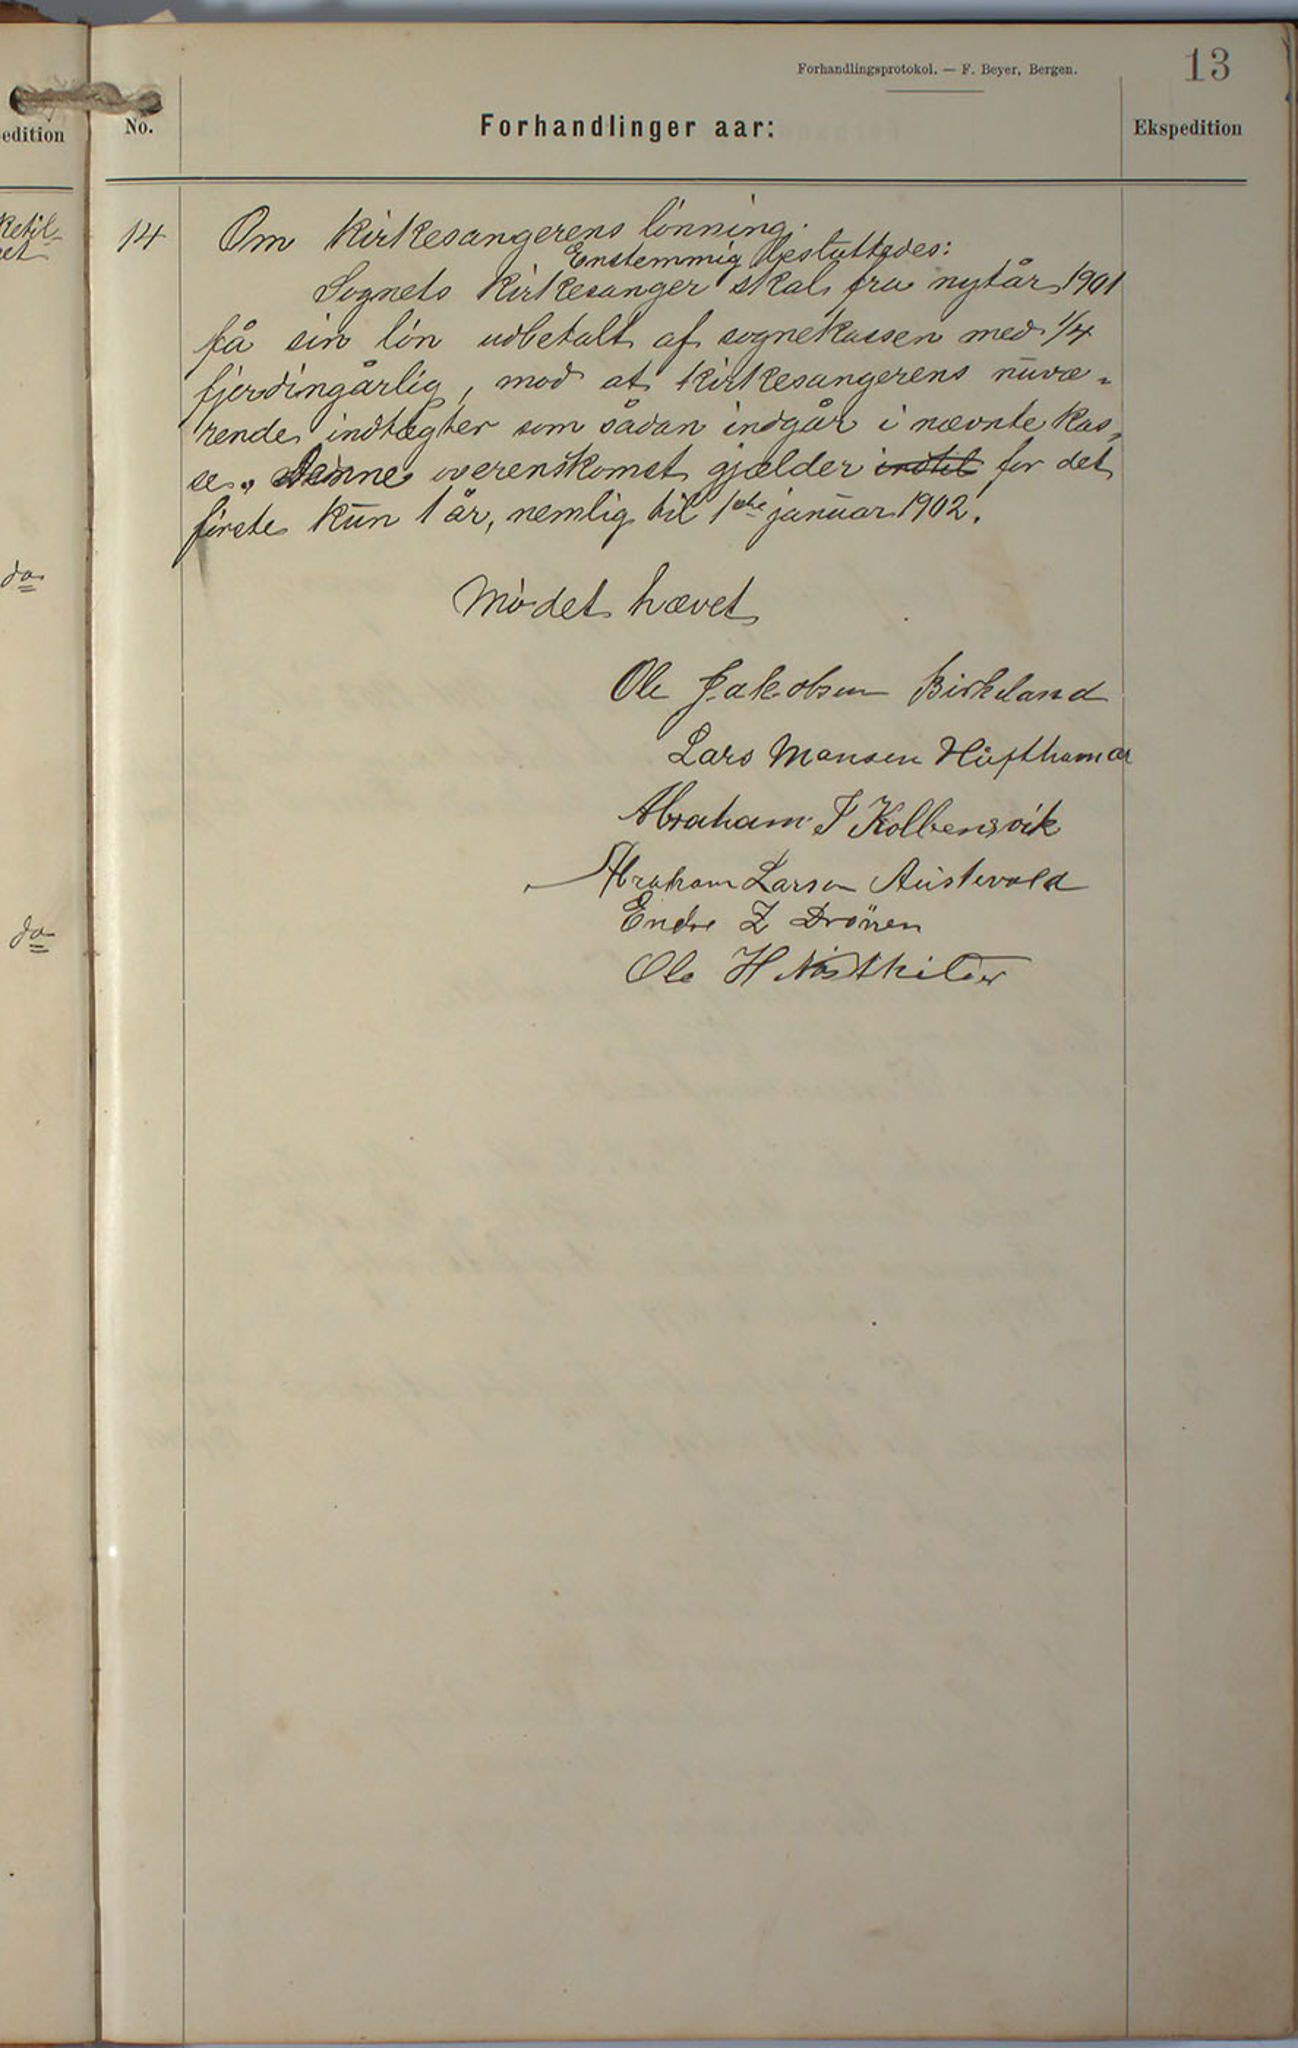 Forhandlingsprotokol. — F. Beyer, Bergen.
13
edition
No.
Forhandlinger aar:
Ekspedition
14
Om kirkesangerens lönning.
Enstemmig besluttedes:
Sognets kirkesanger skal fra nytår 1901
få sin lön udbetalt af sognekassen med 1/4
fjerdingårlig, mod at kirkesangerens nuvæ-
rende indtægter som sådan indgår i nævnte kas-
se. Denne overenskomst gjælder indtil for det
förste kun 1 år, nemlig til 1ste januar 1902.
Mödet hævet
Ole Jakobsen Birkeland
Lars Monsen Hufthamar
Abraham J Kolbensvik
Abraham Larsen Austevold
Endre Z Drönen
Ole H
do
do